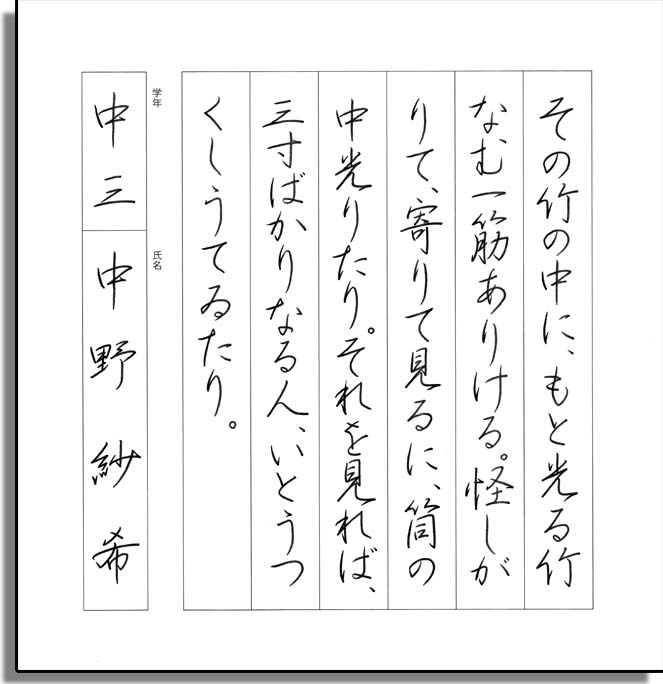 その竹の中に、もと光る竹
なむ一筋ありける。怪しが
りて、寄りて見るに、筒の
中光りたり。それを見れば、
三寸ばかりなる人、いとうつ
くしうてゐたり。
学年
中三
氏名
中野紗希